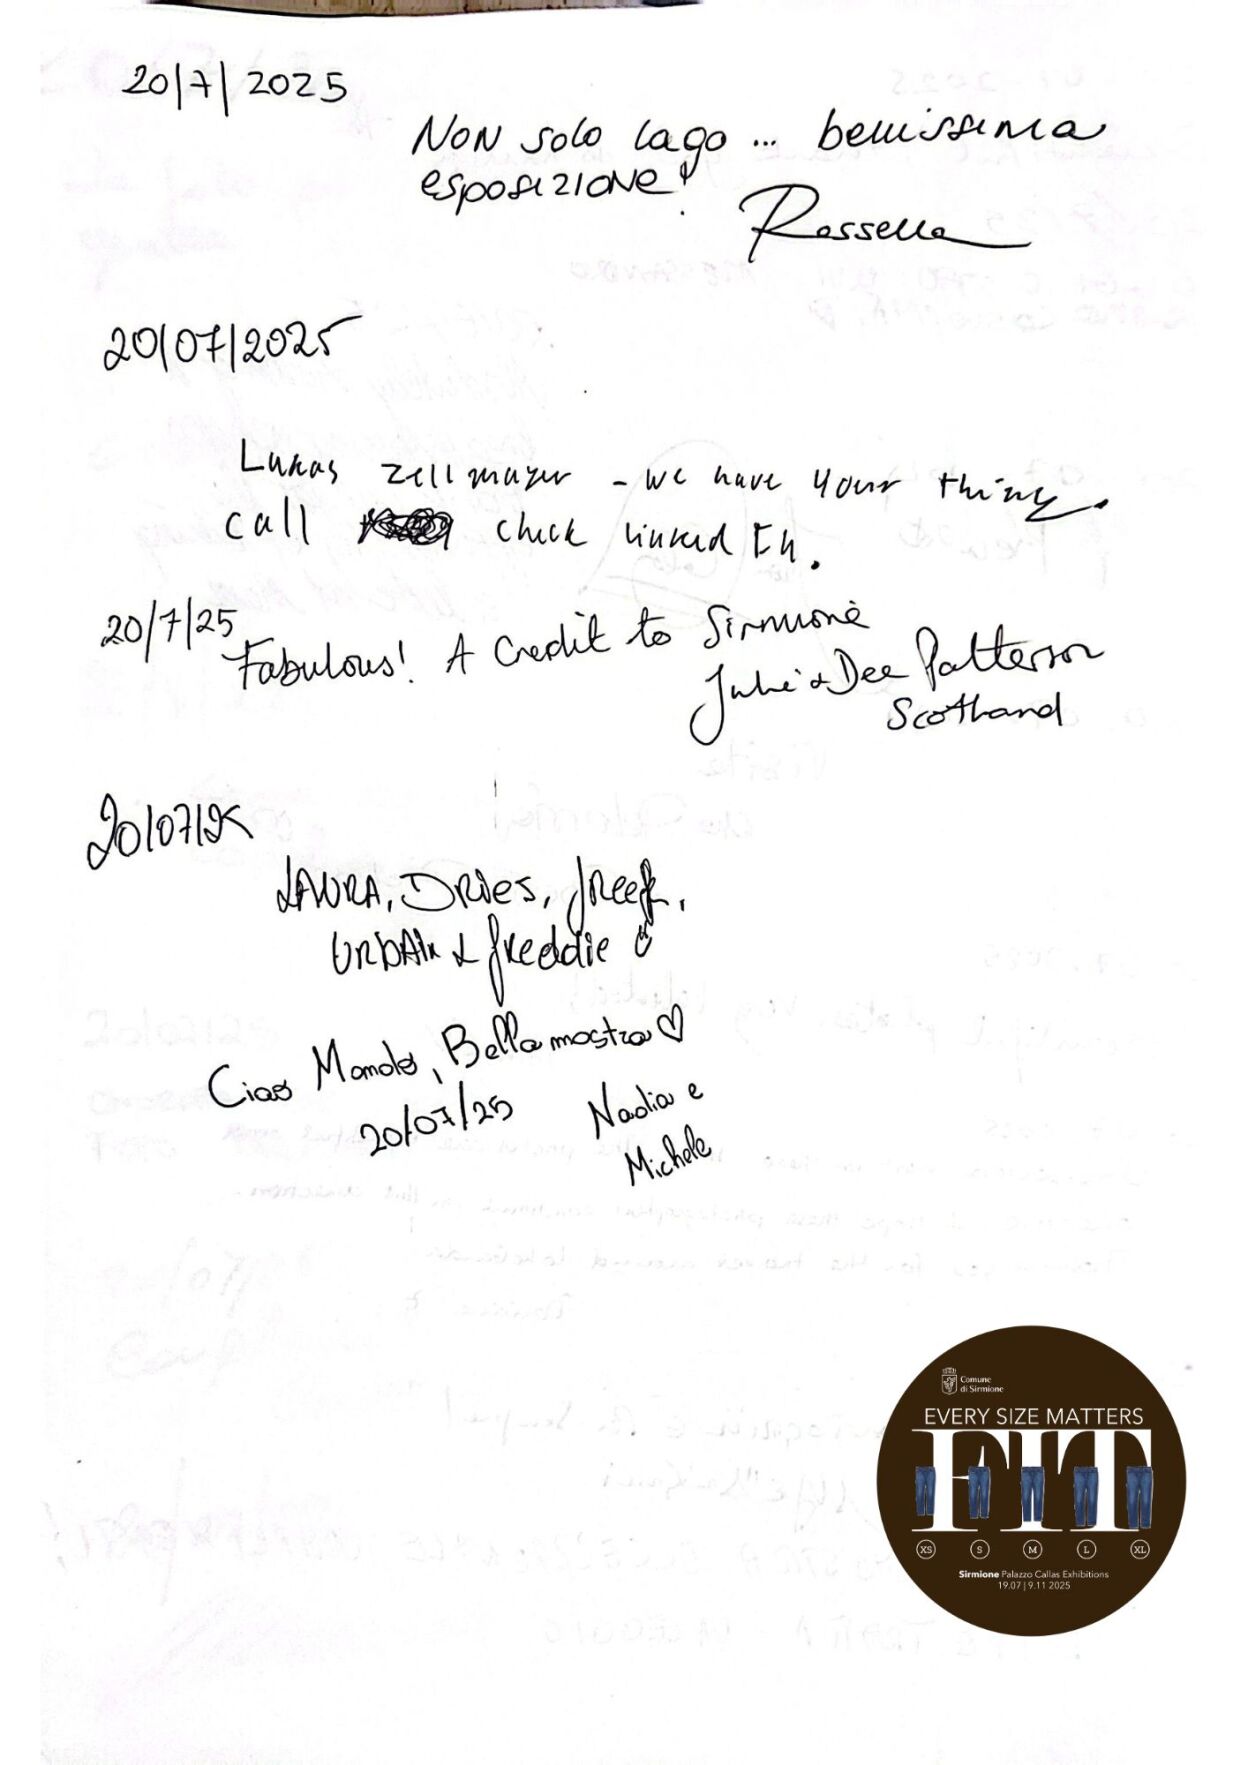 20/7/2025
Non solo lago ... bellissima
esposizione!
Rossella
20/07/2025
Lukas Zellmayer - we have your thing.
call check linked In.
20/7/25
Fabulous! A Credit to Sirmione
Julie & Dee Patterson
Scotland
20/07/25
LAURA, DRIES,
URBAIN & freddie
Ciao Manolo, Bella mostra ♡
20/07/25 Nadia e
Michele
Comune
di Sirmione
EVERY SIZE MATTERS
FIT
XS S M L XL
Sirmione Palazzo Callas Exhibitions
19.07 | 9.11 2025